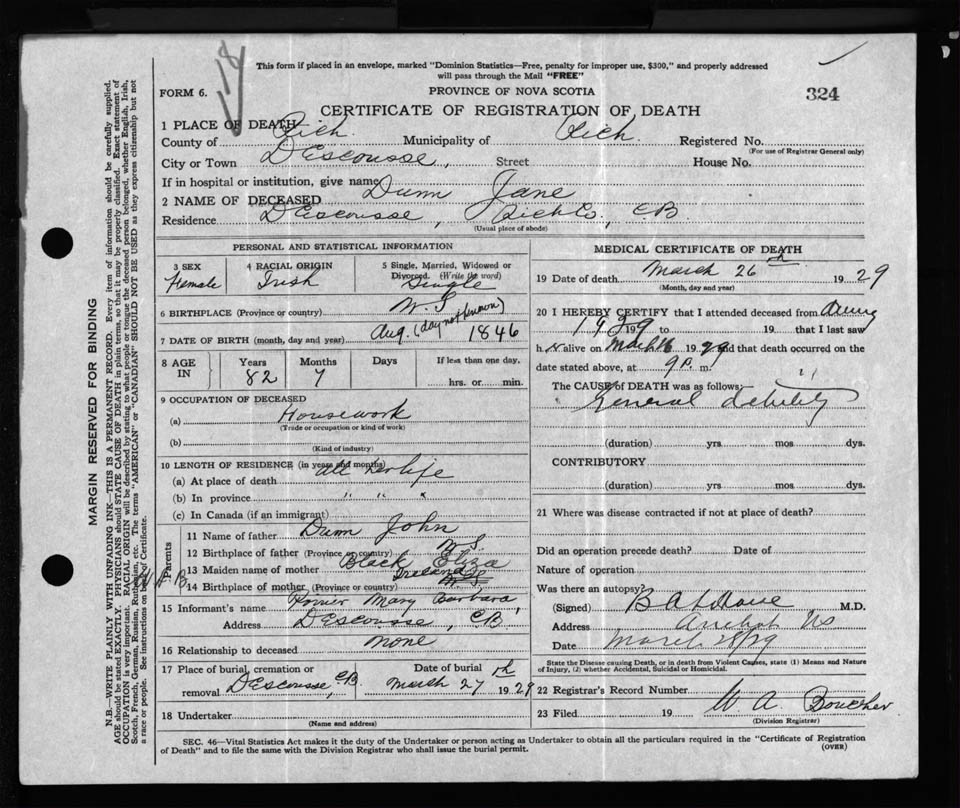 118
This form if placed in an envelope, marked "Dominion Statistics—Free, penalty for improper use, $300," and properly addressed
will pass through the Mail "FREE"
FORM 6.
PROVINCE OF NOVA SCOTIA
324
CERTIFICATE OF REGISTRATION OF DEATH
1 PLACE OF DEATH
County of Rich. Municipality of Rich. Registered No.
(For use of Registrar General only)
City or Town DEscousse, Street House No.
If in hospital or institution, give name
2 NAME OF DECEASED Dunn Jane
Residence DEscousse, Rich Co, CB
(Usual place of abode)
PERSONAL AND STATISTICAL INFORMATION
3 SEX Female
4 RACIAL ORIGIN Irish
5 Single, Married, Widowed or Divorced. (Write the word) Single
6 BIRTHPLACE (Province or country) N.S
7 DATE OF BIRTH (month, day and year) Aug. (day not known) 1846
8 AGE IN Years 82 Months 7 Days If less than one day, hrs. or min.
9 OCCUPATION OF DECEASED
(a) Housework
(Trade or occupation or kind of work)
(b)
(Kind of industry)
10 LENGTH OF RESIDENCE (in years and months)
(a) At place of death All her life
(b) In province " " "
(c) In Canada (if an immigrant)
Parents
11 Name of father Dunn John
12 Birthplace of father (Province or country) N.S.
13 Maiden name of mother Black Eliza
14 Birthplace of mother (Province or country) Ireland N.S.
W.A.B.
15 Informant's name Mary Barbara,
Address DEscousse, CB.
16 Relationship to deceased none
17 Place of burial, cremation or removal DEscousse, CB. Date of burial March 27th 1929
18 Undertaker
(Name and address)
MEDICAL CERTIFICATE OF DEATH
19 Date of death March 26th 1929
(Month, day and year)
20 I HEREBY CERTIFY that I attended deceased from
1929 to 19 that I last saw
h alive on March 16 1929 and that death occurred on the
date stated above, at 9 p. m.
The CAUSE of DEATH was as follows:
General debility
(duration) yrs mos dys.
CONTRIBUTORY
(duration) yrs mos dys.
21 Where was disease contracted if not at place of death?
Did an operation precede death? Date of
Nature of operation
Was there an autopsy?
(Signed) M.D.
Address Arichat NS
Date March 28/29
State the Disease causing Death, or in death from Violent Causes, state (1) Means and Nature
of Injury, (2) whether Accidental, Suicidal or Homicidal.
22 Registrar's Record Number
23 Filed 19 W. A. Boucher
(Division Registrar)
SEC. 46—Vital Statistics Act makes it the duty of the Undertaker or person acting as Undertaker to obtain all the particulars required in the "Certificate of Registration
of Death" and to file the same with the Division Registrar who shall issue the burial permit.
(OVER)
MARGIN RESERVED FOR BINDING
N.B.—WRITE PLAINLY WITH UNFADING INK—THIS IS A PERMANENT RECORD. Every item of information should be carefully supplied.
AGE should be stated EXACTLY. PHYSICIANS should STATE CAUSE OF DEATH in plain terms, so that it may be properly classified. Exact statement of
OCCUPATION is very important. RACIAL ORIGIN will be described by stating to what people or tongue the deceased person belonged, whether English, Irish,
Scotch, French, German, Russian, Ruthenian, etc. The terms "AMERICAN" or "CANADIAN" SHOULD NOT BE USED as they express citizenship but not
a race or people. See instructions on back of Certificate.